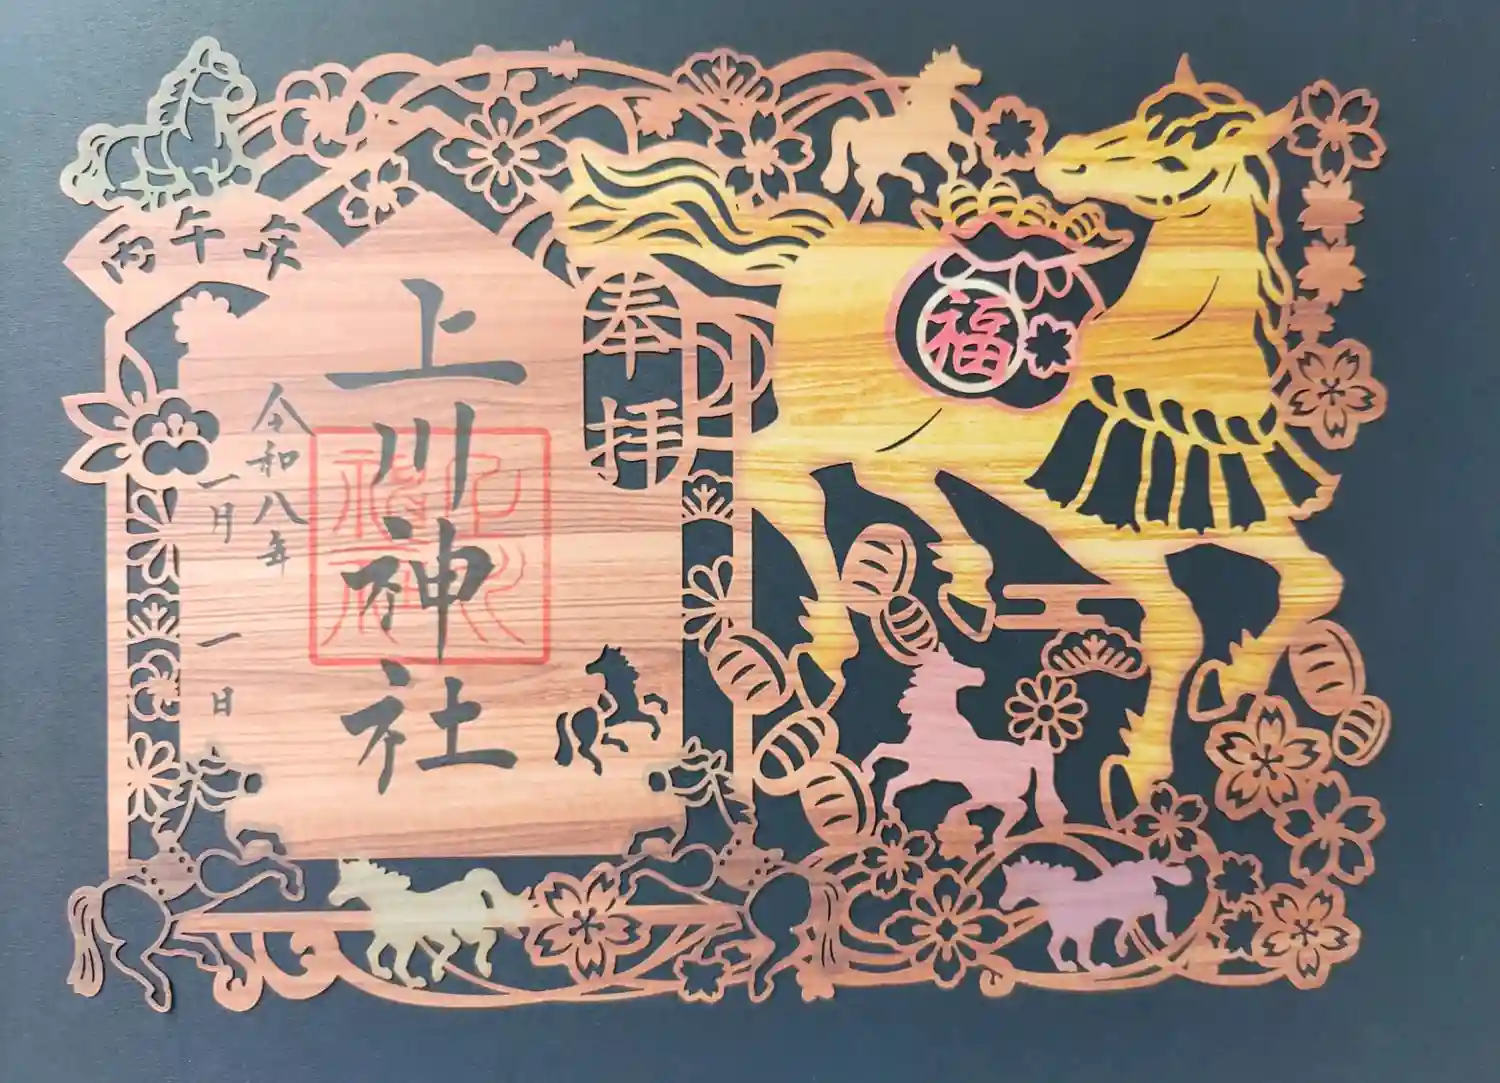 丙午年
奉拝
上川神社
令和八年
一月
一日
福